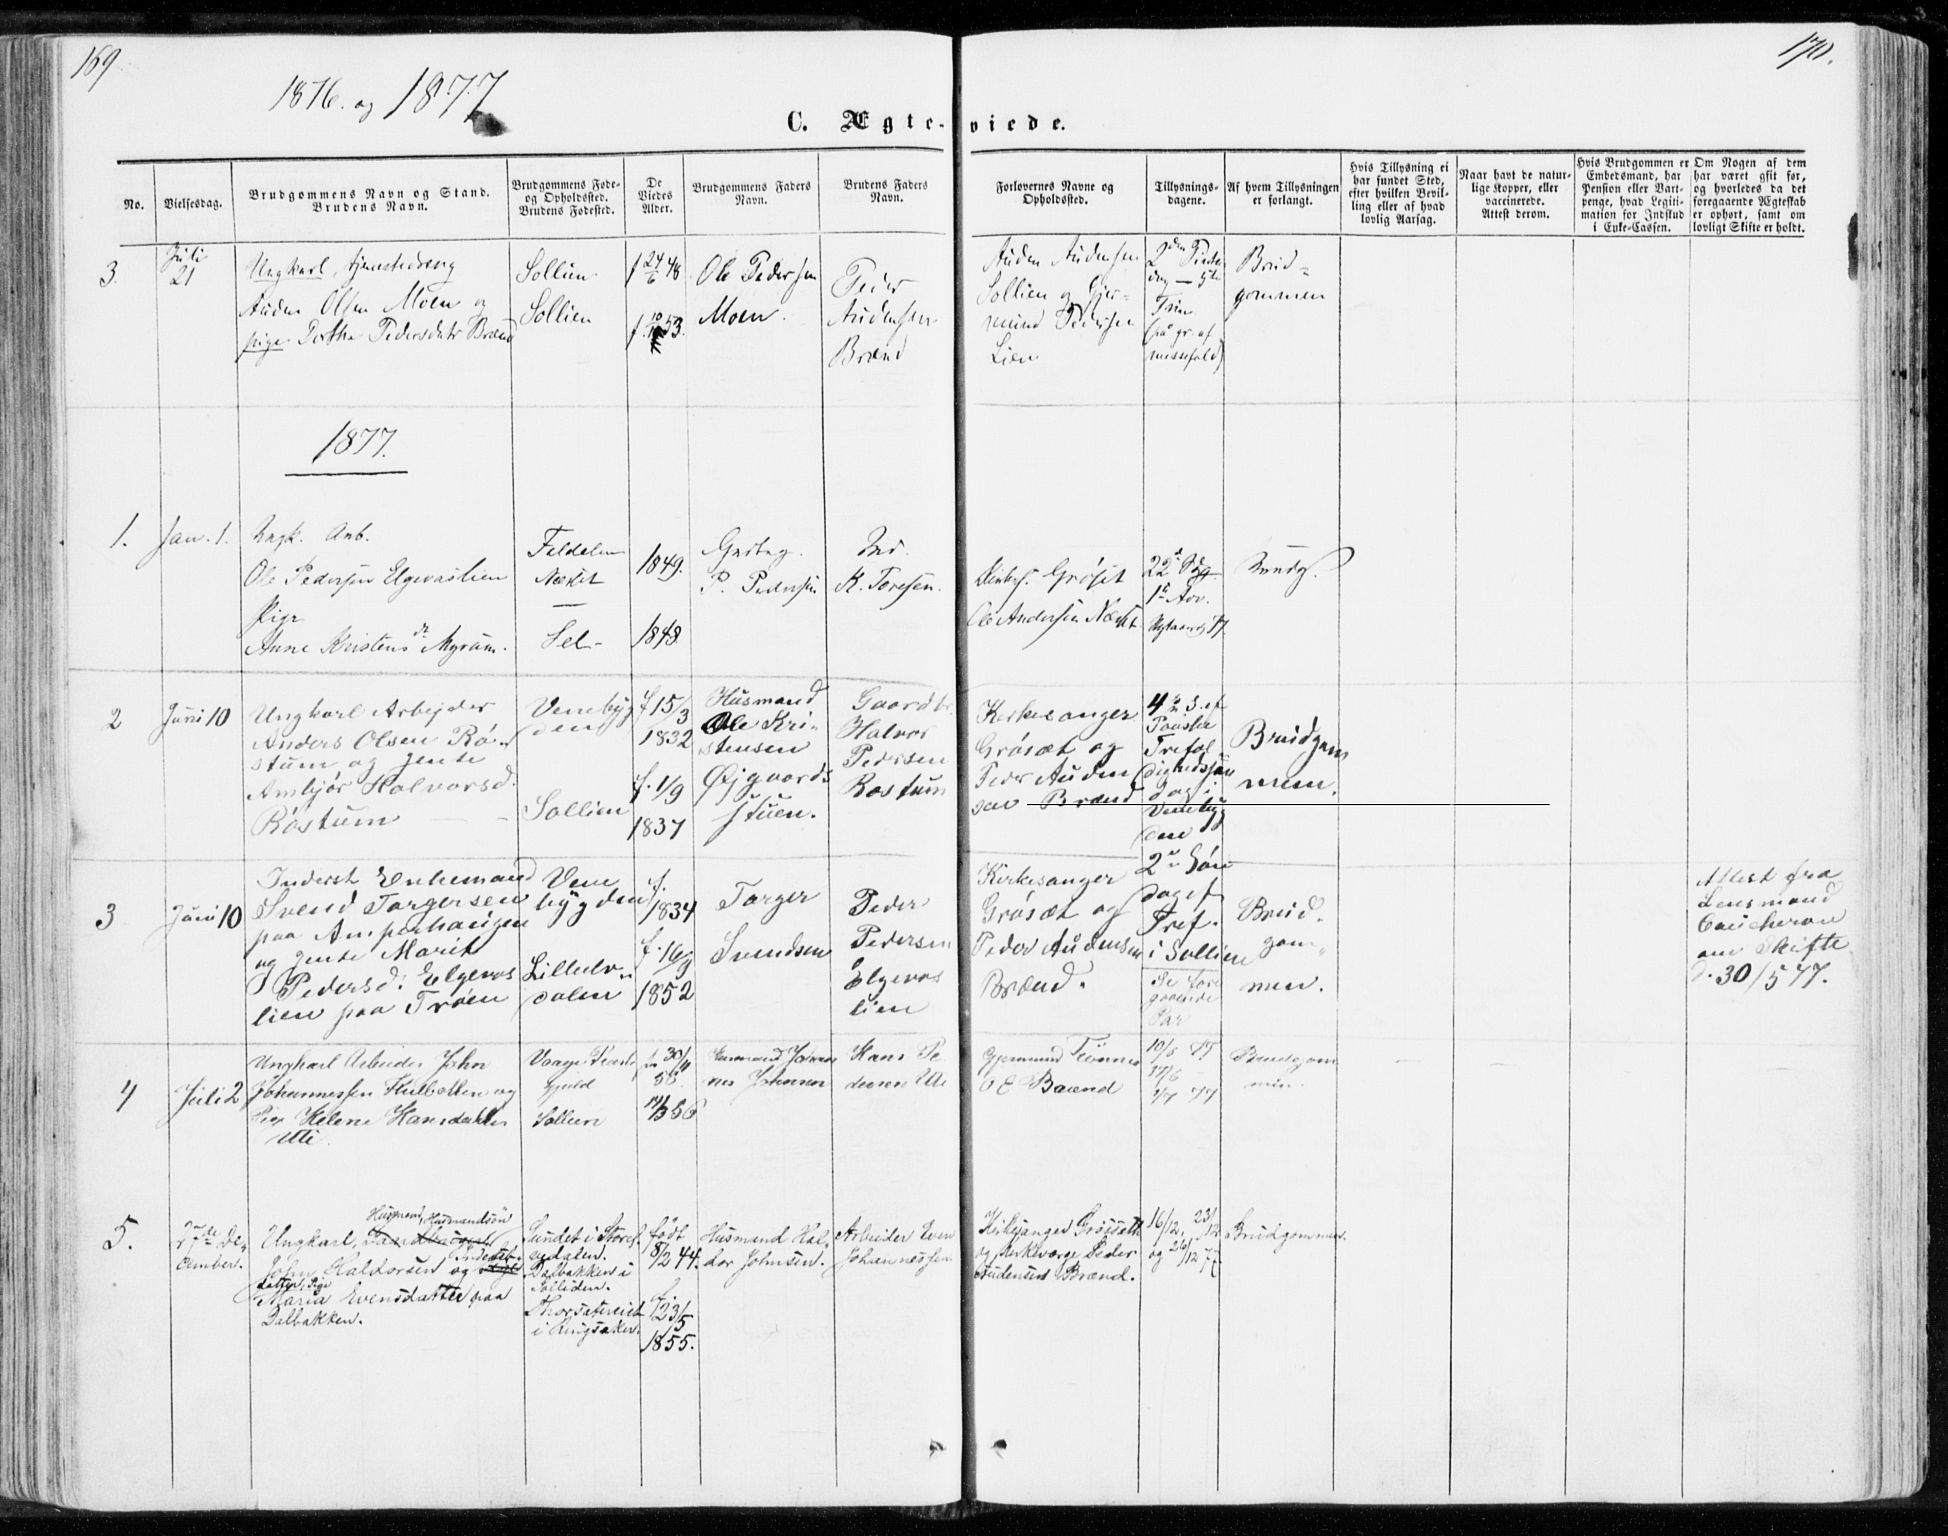 169
170.
1876. og 1877
C. Ægte-viede.
No.
Vielsesdag.
Brudgommens Navn og Stand.
Brudens Navn.
Brudgommens Føde-
og Opholdssted.
Brudens Fødested.
De
Viedes
Alder.
Brudgommens Faders
Navn.
Brudens Faders
Navn.
Forlovernes Navne og
Opholdssted.
Tillysnings-
dagene.
Af hvem Tillysningen
er forlangt.
Hvis Tillysning ei
har fundet Sted,
efter hvilken Bevil-
ling eller af hvad
lovlig Aarsag.
Naar havt de natur-
lige Kopper, eller
vaccinerede.
Attest derom.
Hvis Brudgommen er
Embedsmand, har
Pension eller Vart-
penge, hvad Legiti-
mation for Indskud
i Enke-Cassen.
Om Nogen af dem
har været gift før,
og hvorledes da det
foregaaende Ægteskab
er ophørt, samt om
lovligt Skifte er holdt.
3.
Juli
21
Ungkarl, tjenestedreng
Auden Olsen Moen og
pige Perthe Pedersdatr Brænd
Sollien
Sollien
f 24/6 48
f. 53.
Ole Pedersen
Moen.
Peder
Audensen
Brænd
Auden Audensen
Sollien og Gjer-
mund Pedersen
Lien
2den Pintse
dag — 5te
Trin
(på gr. af
messefald)
Brud=
gommen
1877.
1.
Jan. 1.
Ungk. Arb.
Ole Pedersen Elgevaslien
Pige
Anne Kristensdr Myrum.
Foldalen
Næset
Sel-
1849.
1848
Gaardbrug.
P. Pedersen
Ind.
K. Toresen.
Kirkes. Grøset
Ole Andersen Næset
22de Sdg
1e Adv.
Nytaarsdg 77.
Brudg.
2
Juni 10
Ungkarl Arbejder
Anders Olsen Rø-
stum og jente
Ambjør Halvorsd.
Røstum
Venebyg
den
Sollien
f 15/3
1832
f. 1/9
1837
Husmand
Ole Kri-
stensen
Øjgaards
stuen.
Gaardbr.
Halvor
Pedersen
Rostum
Kirkesanger
Grøsæt og
Peder Auden
sen Brænd
4de S. ef
Paaske
Trefol
dighedssøn
dag i
Venebyg
den
Brudgom
men.
3
Juni 10
Inderst Enkemand
Svend Torgersen
paa Amperhaugen
og jente Marit
Pedersd. Elgevas
lien paa Trøen
Vene
bygden
Lilleelv-
dalen
f.
1834
f. 16/9
1852
Torger
Svendsen
Peder
Pedersen
Elgevas
lien
Kirkesanger
Grøsæt og
Peder Audensen
Brænd.
2den Søn
dag ef
Tref.
i Sollien
Se fore
gaaende
Par
Brud-
gom-
men.
Attest fra
Lensmand
Caucheron
om Skifte
d. 30/5 77.
4
Juli 2
Ungkarl Arbeider John
Johannessen Hulbakken og
Pige Helene Hansdatter
Utti.
Vaage Præste
gjeld
Sollien
f. 30/4
14/3 56
Husmand Johan
nes Johnsen
Hans Pe
dersen Uti
Gjermund Trønnes
O E Brænd
10/5 77
17/6
1/7 77
Brudgom
men.
5.
27de De-
cember.
Husmand, Husmandssøn
Ungkarl,
Inderst-
John Haldorsen og
datter, Pige
Maria Evensdatter paa
Dalbakken.
Sundet i Storel-
vedalen.
Dalbakken i
Solliden.
i Ringsaker.
født
8/2 44.
f.
23/5
1855.
Husmand Hal-
dor Johnsen.
Arbeider Even
Johannessen
Kirkesanger Grøsseth
og Kirkeværge Peder
Audensen Brænd.
16/12, 23/12
og 26/12 77
Brudgommen.